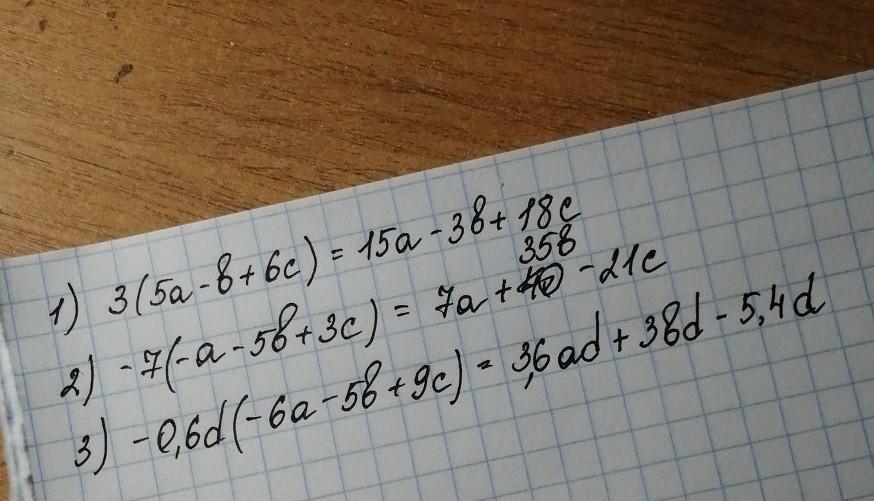 1) 3(5a-b+6c) = 15a-3b+18c
35b
2) -7(-a-5b+3c) = 7a+ -21c
3) -0,6d(-6a-5b+9c) = 3,6ad+3bd-5,4d